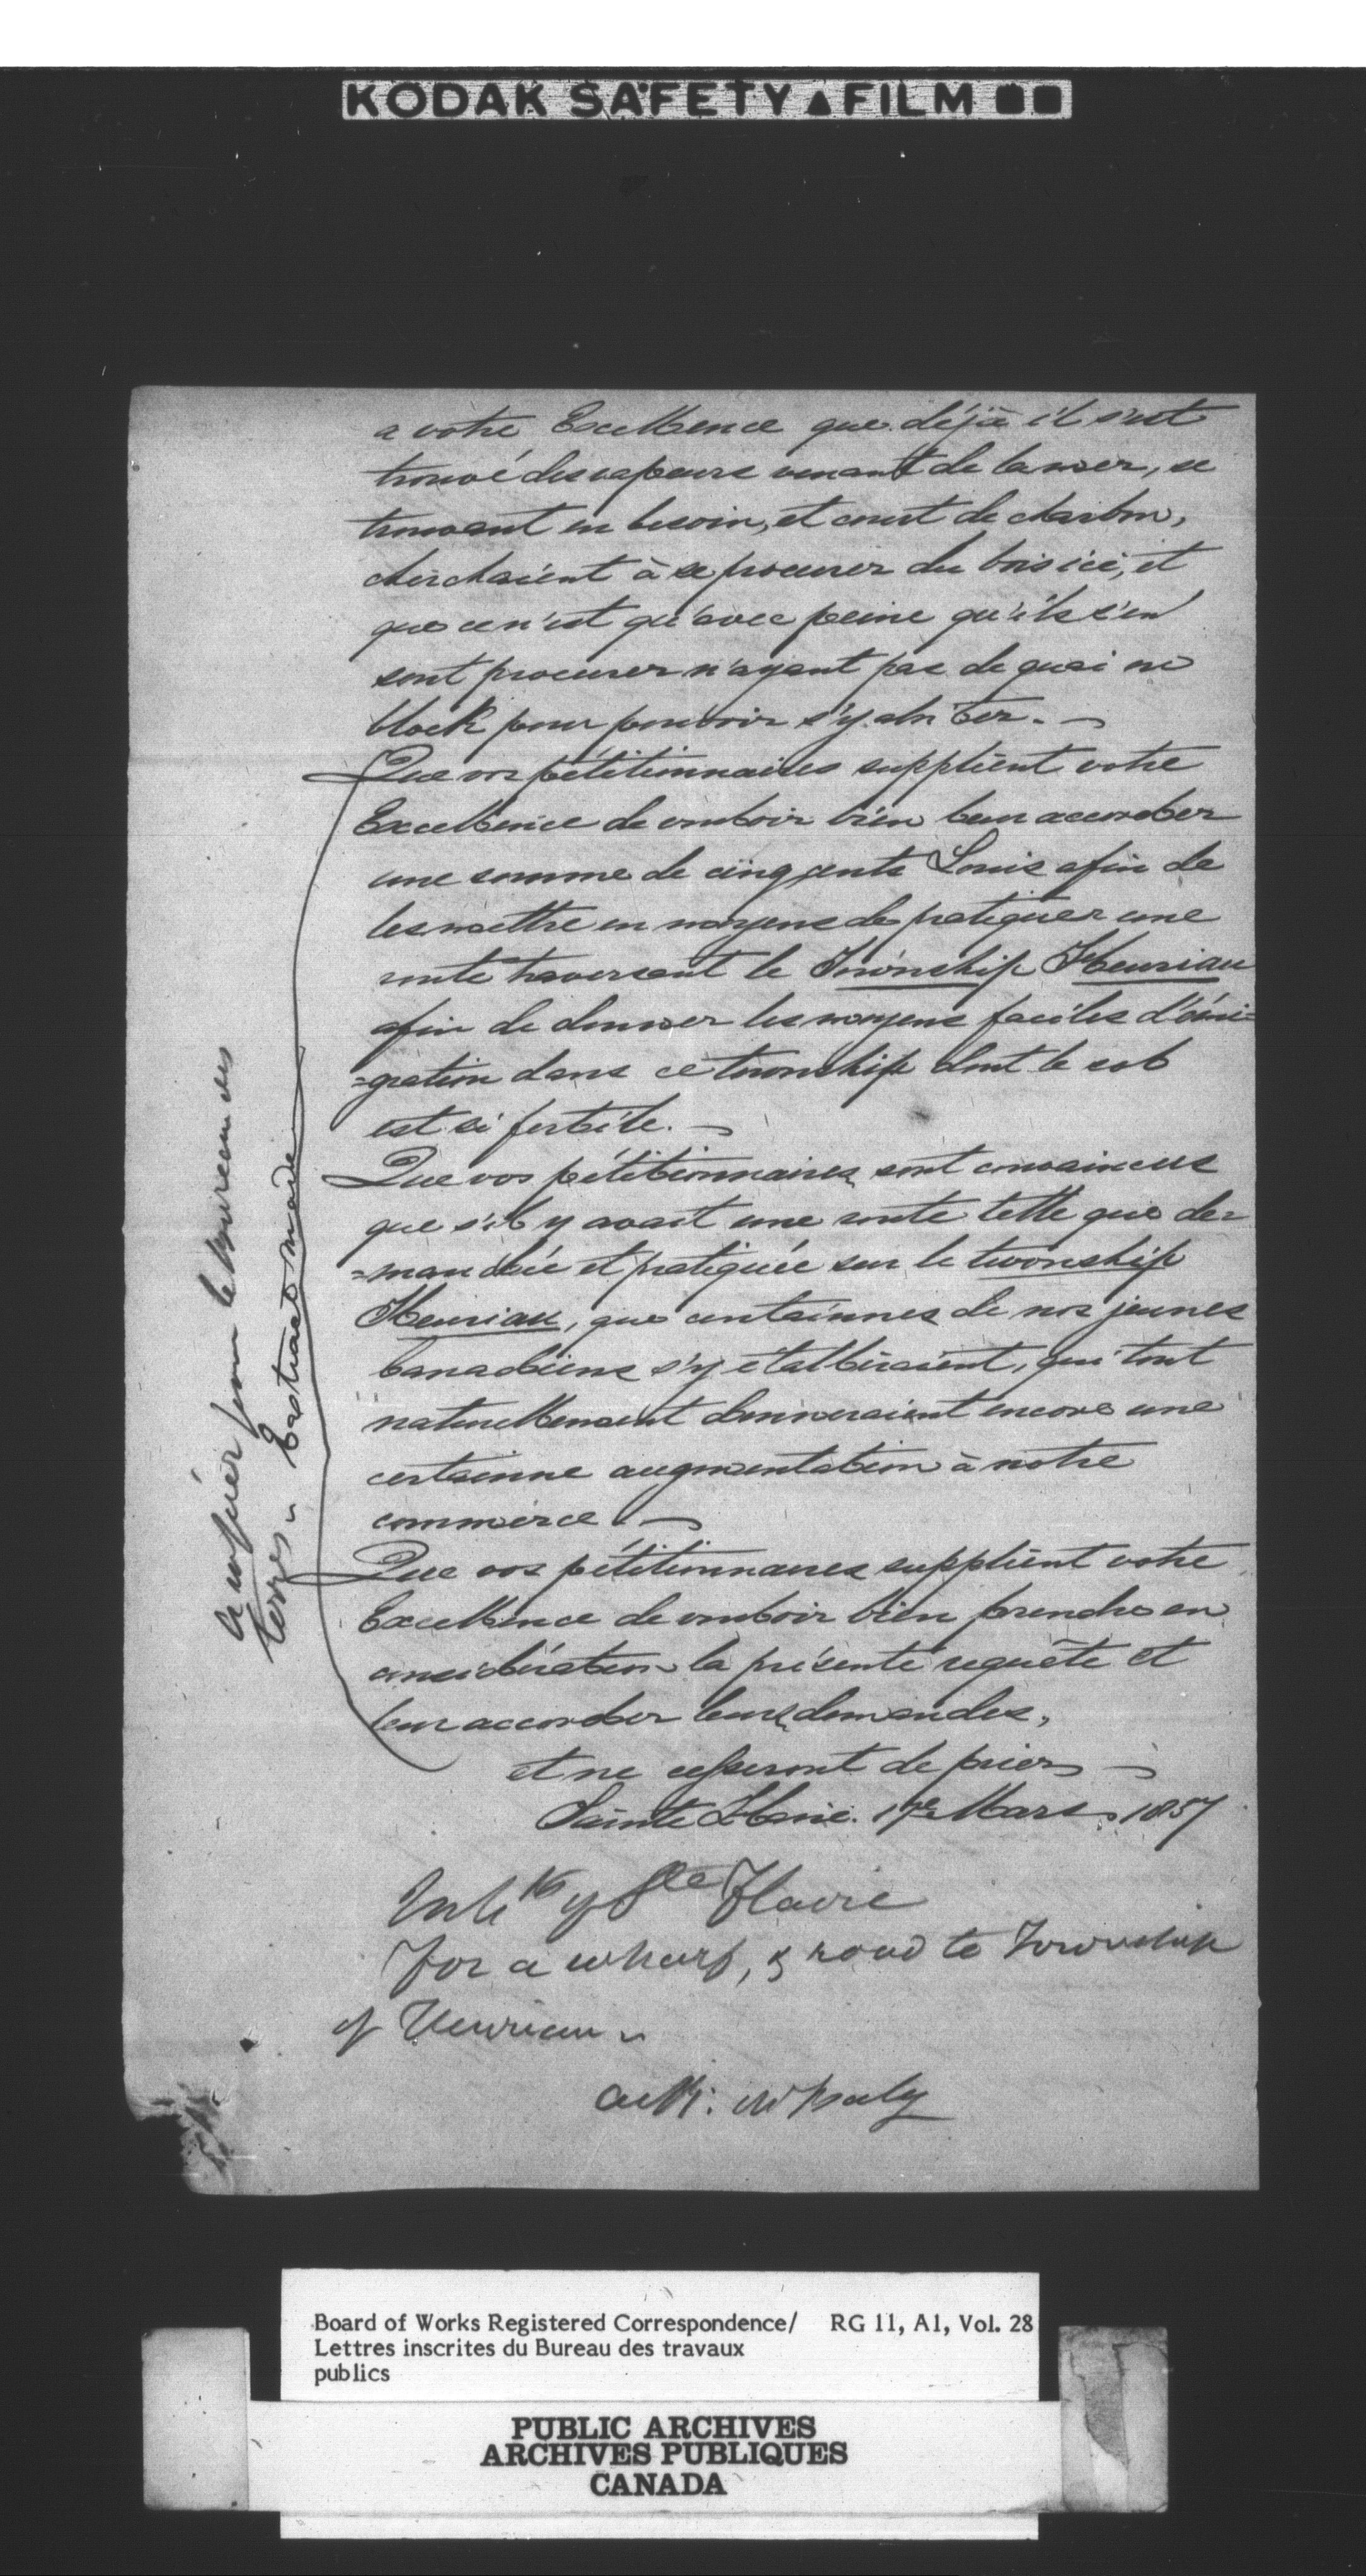 KODAK SAFETY FILM
a votre Excellence que déjà il s'est
trouvé des vapeurs venant de la mer, se
trouvant en besoin, et court de charbon,
cherchaient à se procurer du bois ici, et
que ce n'est qu'avec peine qu'ils s'en
sont procurer n'ayant pas de quai ni
block pour pouvoir s'y abriter. —
Que vos pétitionnaires supplient votre
Excellence de vouloir bien leur accorder
une somme de cinq cents Louis afin de
les mettre en moyens de pratiquer une
route traversant le Township Neuriau
afin de donner les moyens faciles d'émi=
=gration dans ce township dont le sol
est si fertile. —
Que vos pétitionnaires sont convaincus
que s'il y avait une route telle que de=
=mandée et pratiquée sur le township
Neuriau, que centainnes de nos jeunes
Canadiens s'y établiraient, qui tout
naturellement donneraient encore une
certainne augmentation à notre
commerce. —
Que vos pétitionnaires supplient votre
Excellence de vouloir bien prendre en
considération la présente requête et
leur accorder leurs demandes,
et ne cesseront de prier —
Sainte Flavie. 17e Mars 1857
a copier pour le bureau des
terres – Extract made
Inhts of Ste Flavie
For a wharf, & road to Township
of
Board of Works Registered Correspondence/ RG 11, A1, Vol. 28
Lettres inscrites du Bureau des travaux
publics
PUBLIC ARCHIVES
ARCHIVES PUBLIQUES
CANADA